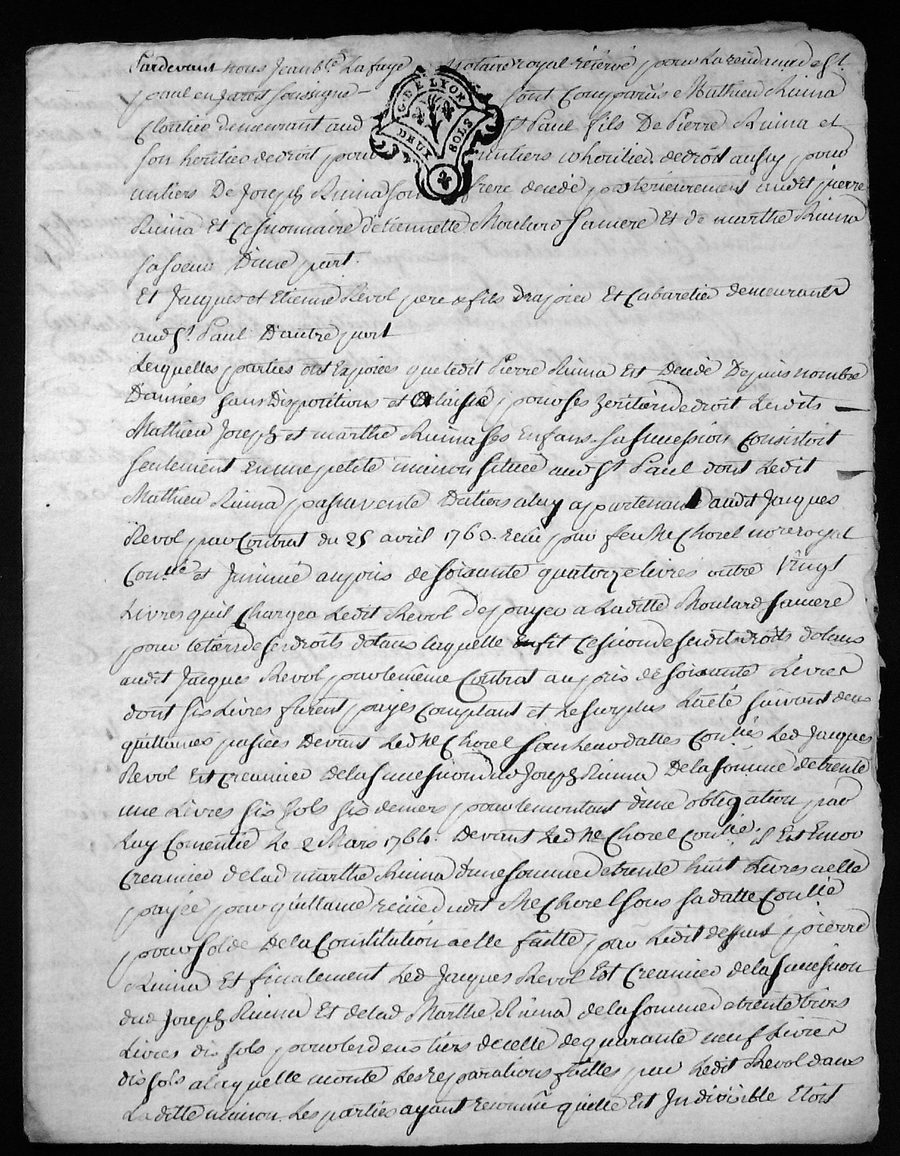 Pardevant nous Jean Bte Lafaye notaire royal réservé pour la résidance de St
paul en Jarest soussigné sont Comparus Mathieu Riuina
G.DE LYON
DEUX SOLS
Cloutier demeurant aud St Paul fils De Pierre Riuina et
son heritier de droit pour un tiers coheritier de droit aussy pour
un tiers De Joseph Riuina son frere decedé posterieurement audit pierre
Riuina Et Cessionnaire d'etiennette Moulard sa mere Et de marthe Riuina
sa soeur D'une part.
Et Jacques et Etienne Revol pere & fils Drapier Et Cabaretier demeurants
aud St Paul D'autre part
Lesquelles parties ont Exposées que ledit Pierre Riuina Est Decedé Depuis nombre
D'années sans Dispositions et a laissé pour ses heritiers de droit lesdits
Mathieu Joseph et marthe Riuina ses Enfans. sa succession Consistoit
seulement en une petite maison située aud St Paul dont Ledit
Mathieu Riuina passa vente Du tiers a luy appartenant audit Jacques
Revol par Contrat du 25 avril 1763. reçu par feu Me Chorel nore royal
Conllé et Insinué au prix de soixante quatorze livres outre Vingt
Livres quil Chargea Ledit Revol de payer a Laditte Moulard sa mere
pour le tiers de ses droits dotaux laquelle fit Cession de sesdits droits dotaux
audit Jacques Revol par le même Contrat au prix de soixante Livres
dont six Livres furent payes Comptant et le surplus l'a été suivant deux
quittances passées Devant Led Me Chorel sous leurs dattes Conllées Led Jacques
Revol Est Creancier de la succession dud Joseph Riuina De la somme de trente
une Livres six sols six deniers pour le montant d'une obligation par
Luy Consentie Le 2 Mars 1764. Devant Led Me Chorel Conllée. Il Est Encor
Creancier de lad marthe Riuina d'une somme de trente huit Livres a elle
payée pour quittance reçue dudit Me Chorel sous sa datte Conllée
pour solde De la Constitution a elle faitte par Ledit deffunt pierre
Riuina Et finalement Led Jacques Revol Est Creancier de la succession
dud Joseph Riuina Et de lad Marthe Riuina de la somme de trente trois
Livres dix sols pour les deux tiers de celle de quarante neuf Livres
dix sols a laquelle monte Les reparations faittes par Ledit Revol dans
Laditte maison. Les parties ayant reconnu quelle Est Indivisible Etoit